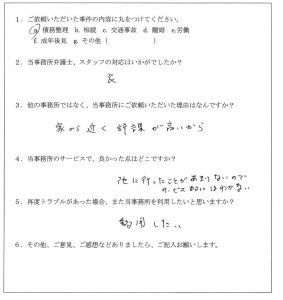 1．ご依頼いただいた事件の内容に丸をつけてください。
a 債務整理 b. 相続 c. 交通事故 d. 離婚 e.労働
f. 成年後見 g. その他（ ）
2．当事務所弁護士、スタッフの対応はいかがでしたか？
良
3．他の事務所ではなく、当事務所にご依頼いただいた理由はなんですか？
家から近く 評課が高いから
4．当事務所のサービスで、良かった点はどこですか？
他に行ったことがあまりないので
サービス的にはわからない
5．再度トラブルがあった場合、また当事務所を利用したいと思いますか？
利用したい
6．その他、ご意見、ご感想などありましたら、ご記入お願いします。